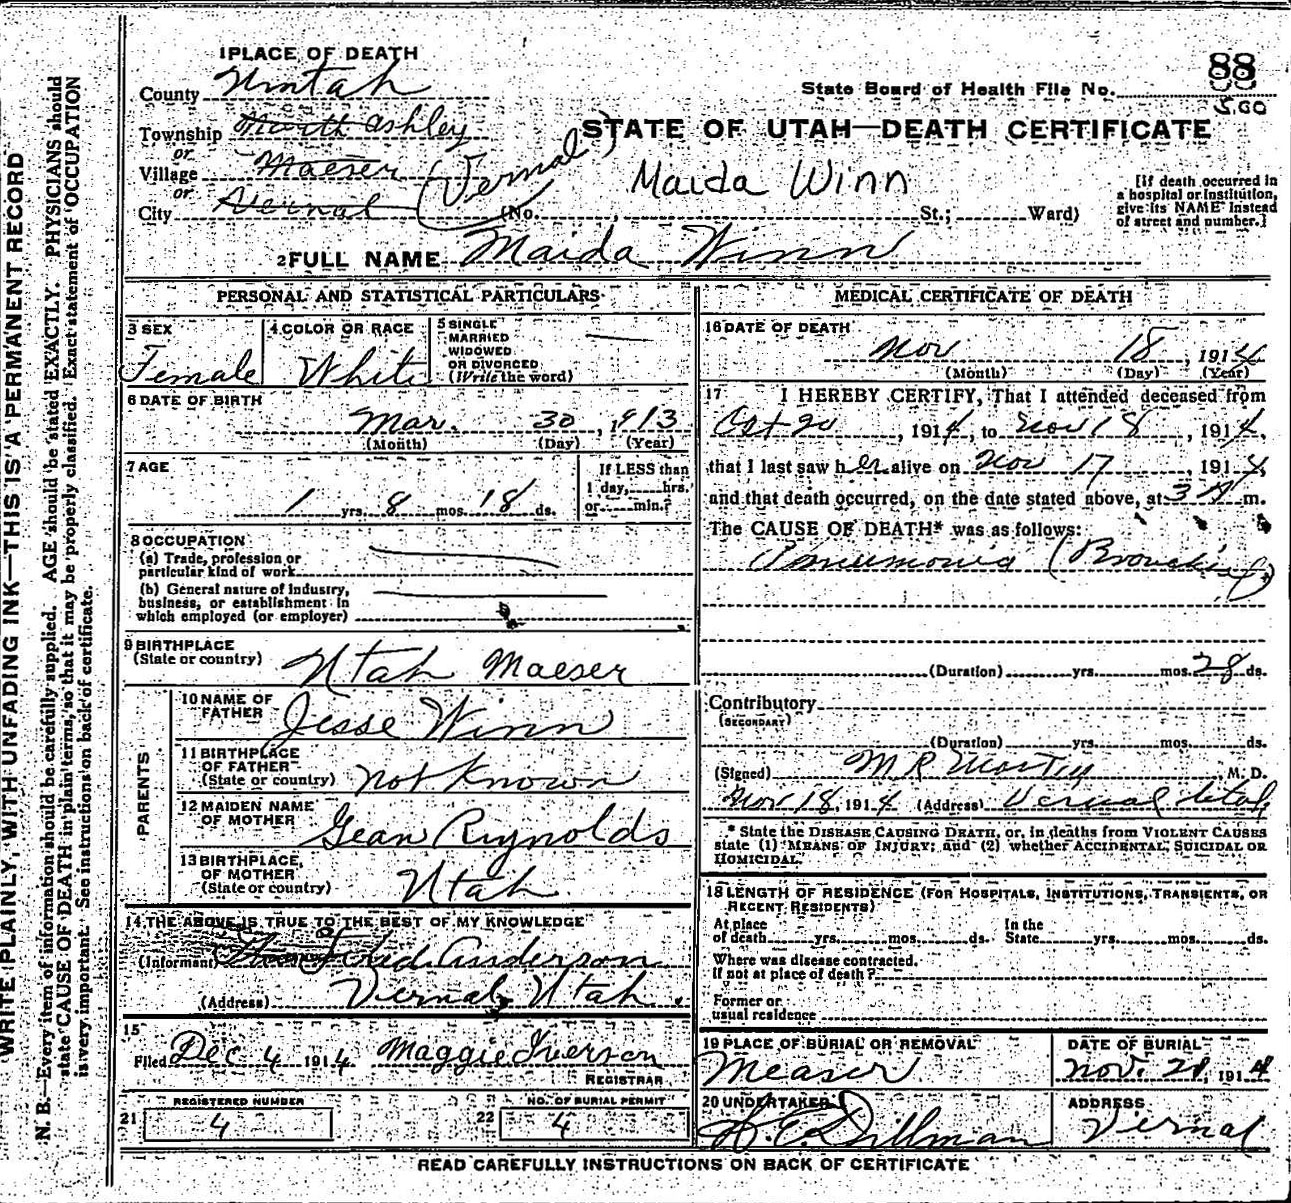 WRITE PLAINLY, WITH UNFADING INK—THIS IS A PERMANENT RECORD
N. B.—Every item of information should be carefully supplied. AGE should be stated EXACTLY. PHYSICIANS should
state CAUSE OF DEATH in plain terms, so that it may be properly classified. Exact statement of OCCUPATION
is very important. See instructions on back of certificate.
1 PLACE OF DEATH
County Uintah
State Board of Health File No. 88
500
Township North Ashley
or
Village Maeser (Vernal)
or
City Vernal
STATE OF UTAH—DEATH CERTIFICATE
Maida Winn
(No. , St.; Ward)
[If death occurred in
a hospital or institution,
give its NAME instead
of street and number.]
2 FULL NAME Maida Winn
PERSONAL AND STATISTICAL PARTICULARS
3 SEX
Female
4 COLOR OR RACE
White
5 SINGLE
MARRIED
WIDOWED
OR DIVORCED
(Write the word)
6 DATE OF BIRTH
Mar. 30, 1913
(Month) (Day) (Year)
7 AGE
1 yrs. 8 mos. 18 ds.
If LESS than
1 day, hrs.
or min.?
8 OCCUPATION
(a) Trade, profession or
particular kind of work
(b) General nature of industry,
business, or establishment in
which employed (or employer)
9 BIRTHPLACE
(State or country) Utah Maeser
PARENTS
10 NAME OF
FATHER Jesse Winn
11 BIRTHPLACE
OF FATHER
(State or country) not Known
12 MAIDEN NAME
OF MOTHER Gean Rugnolds
13 BIRTHPLACE
OF MOTHER
(State or country) Utah
14 THE ABOVE IS TRUE TO THE BEST OF MY KNOWLEDGE
(Informant) Anderson
(Address) Vernal, Utah.
15
Filed Dec 4 1914 Maggie Iverson
REGISTRAR
REGISTERED NUMBER
21 4
NO. OF BURIAL PERMIT
22 4
MEDICAL CERTIFICATE OF DEATH
16 DATE OF DEATH
Nov 18, 1914
(Month) (Day) (Year)
17 I HEREBY CERTIFY, That I attended deceased from
Oct 20, 1914, to Nov 18, 1914,
that I last saw her alive on Nov 17, 1914,
and that death occurred, on the date stated above, at 3 m.
The CAUSE OF DEATH* was as follows:
Pneumonia
(Duration) yrs. mos. 28 ds.
Contributory
(SECONDARY)
(Duration) yrs. mos. ds.
(Signed) M. D.
Nov 18, 1914 (Address) Vernal Utah
* State the DISEASE CAUSING DEATH, or, in deaths from VIOLENT CAUSES
state (1) MEANS OF INJURY; and (2) whether ACCIDENTAL, SUICIDAL OR
HOMICIDAL.
18 LENGTH OF RESIDENCE (FOR HOSPITALS, INSTITUTIONS, TRANSIENTS, OR
RECENT RESIDENTS)
At place
of death yrs. mos. ds.
In the
State yrs. mos. ds.
Where was disease contracted,
if not at place of death?
Former or
usual residence
19 PLACE OF BURIAL OR REMOVAL
Measer
DATE OF BURIAL
Nov. 20, 1914
20 UNDERTAKER
Dillman
ADDRESS
Vernal
READ CAREFULLY INSTRUCTIONS ON BACK OF CERTIFICATE